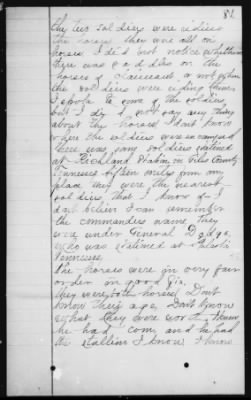 82
the two soldiers were riding
the horses they were all on
horses I did not notice whether
there was saddles on the
horses of claimant or not when
the soldiers were riding them
I spoke to some of the soldiers
but I did not say any thing
about the horses I don't know
where the soldiers were encamped
there was some soldiers stationed
at Richland Station in Giles County
Tennessee fifteen miles from my
place they were the nearest
soldiers that I know of I
dont believe I can remember
the commanders name, they
were under General Dodge
who was stationed at Pulaski
Tennessee
The horses were in very fair
order in good fix,
they were both horses Don't
know their age, Dont know
what they were worth I knew
he had com and he had
the Stallion I know I know